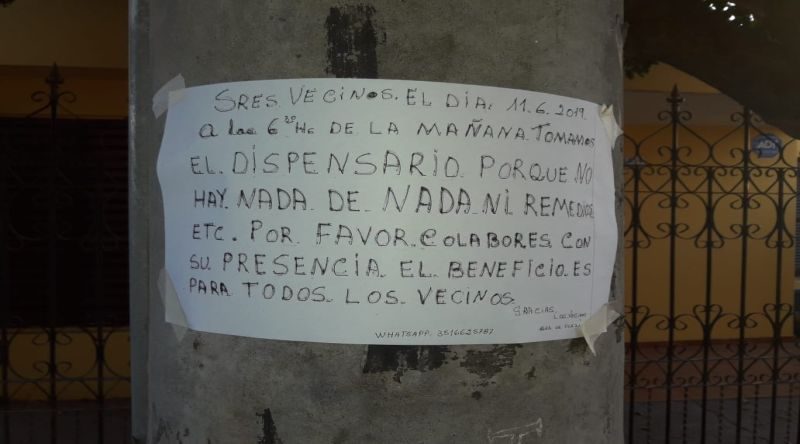 SRES. VECINOS. EL DIA. 11.6.2019
a las 6 30 Hs DE LA MAÑANA. TOMAMOS
EL. DISPENSARIO. PORQUE NO
HAY. NADA. DE. NADA. NI REMEDIOS
ETC. POR. FAVOR. COLABORES. CON
SU. PRESENCIA. EL. BENEFICIO. ES
PARA. TODOS. LOS. VECINOS.
GRACIAS.
WHATSAPP. 3516625787
ADT